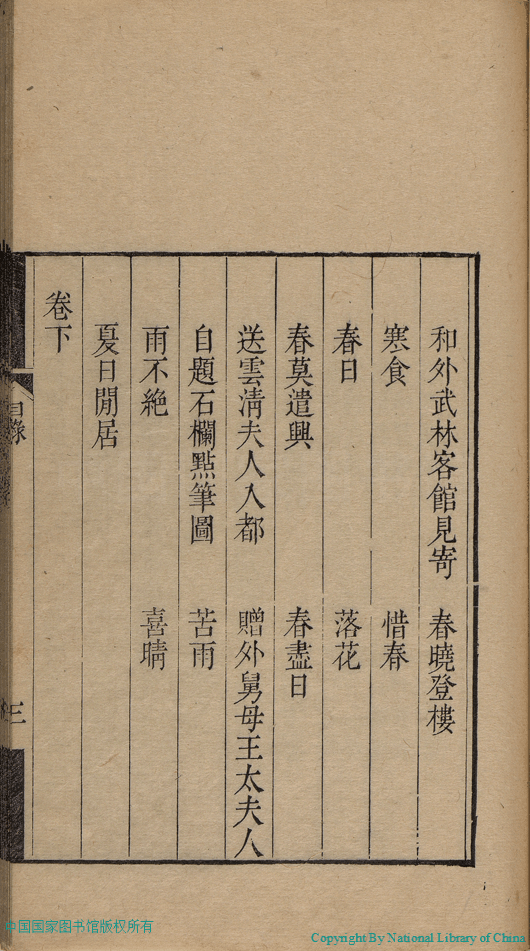 和外武林客館見寄 春曉登樓
寒食 惜春
春日 落花
春莫遣興 春盡日
送雲淸夫人入都 贈外舅母王太夫人
自題石欄點筆圖 苦雨
雨不絶 喜晴
夏日閒居
卷下
目錄
三
中国国家图书馆版权所有
Copyright By National Library of China